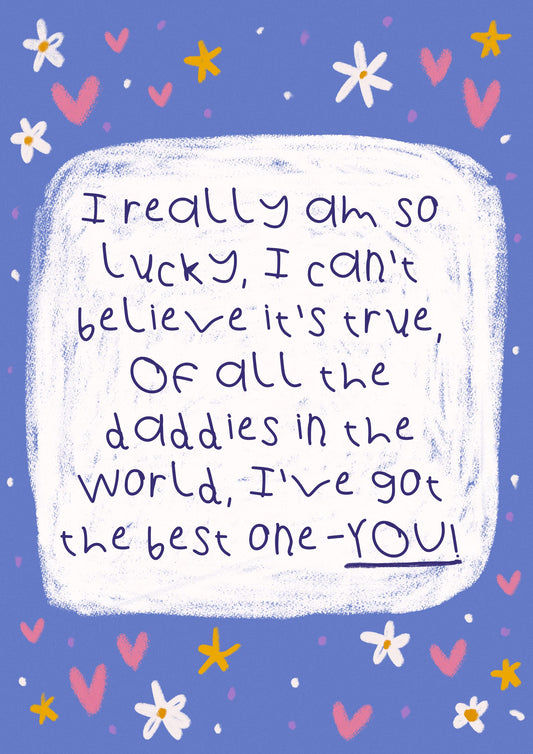 I really am so
lucky, I can't
believe it's true,
Of all the
daddies in the
world, I've got
the best one - YOU!